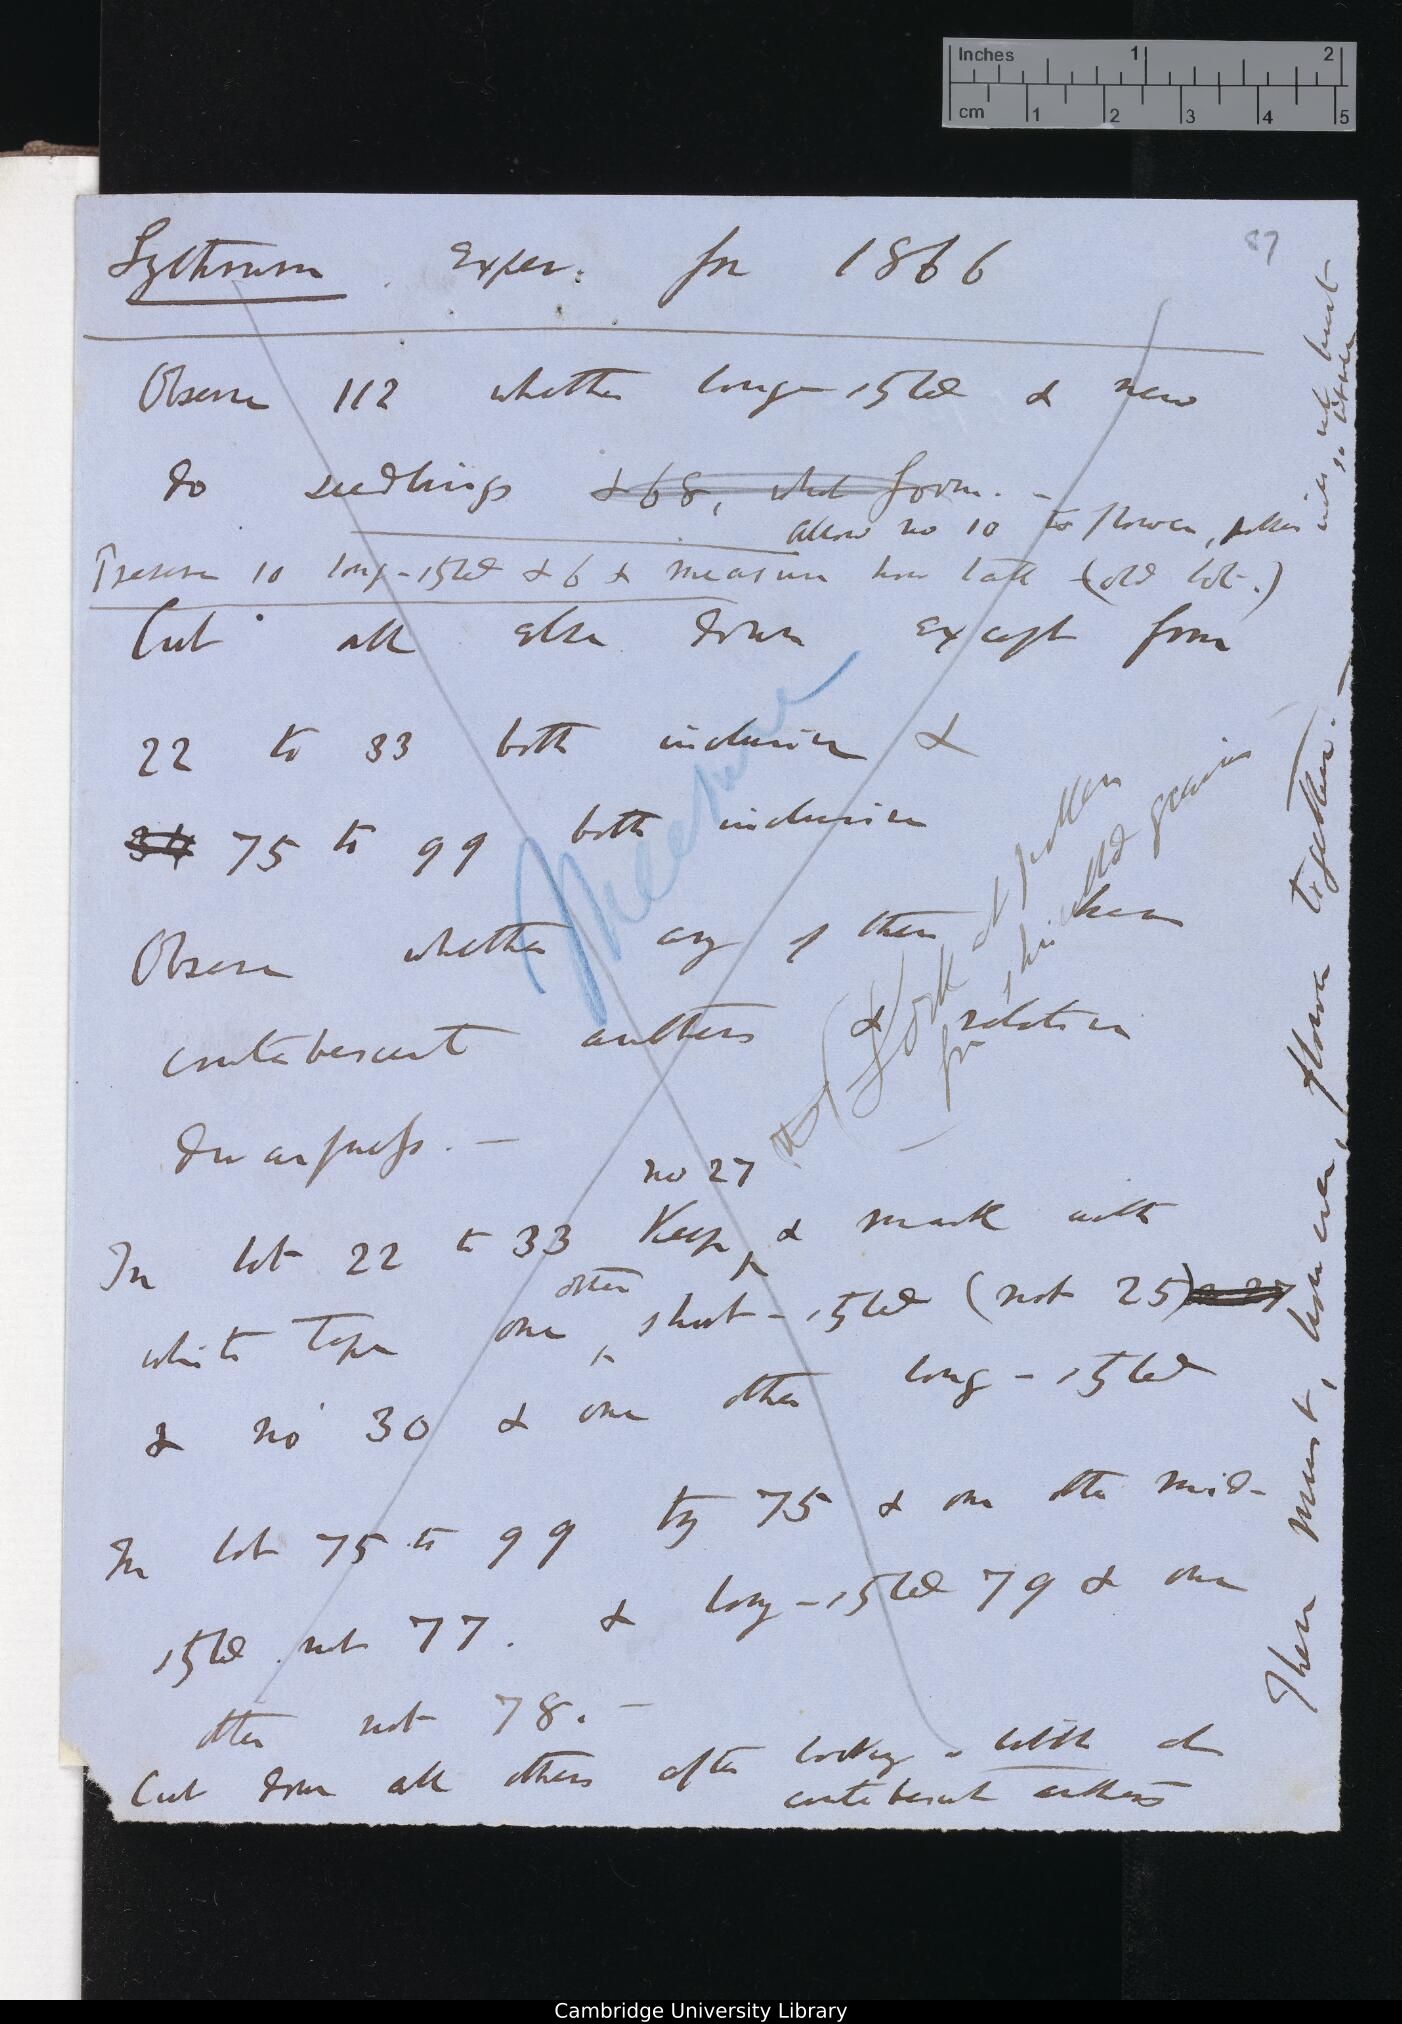 Inches 1 2
cm 1 2 3 4 5
87
Lythrum Exper. for 1866
Observe 112 whether long-styled & new
do seedlings & 68, what form. —
allow no 10 to flower, pollen
Preserve 10 long-styled & 6 & measure how tall (old lot.)
Cut all else down except from
22 to 33 both inclusive &
34 75 to 99 both inclusive
Observe whether any of these have
contabescent anthers & relation
dwarfness. —
Look at pollen
for shrivelled grains
no 27
In lot 22 to 33 Keep & mark with
other
white tape one short-styled (not 25) & 27
& no 30 & one other long-styled
In lot 75 to 99 try 75 & one other mid-
styled not 77. & long-styled 79 & one
other not 78. —
Cut down all others after looking to with
contabescent anthers
These must, however, flower together. —